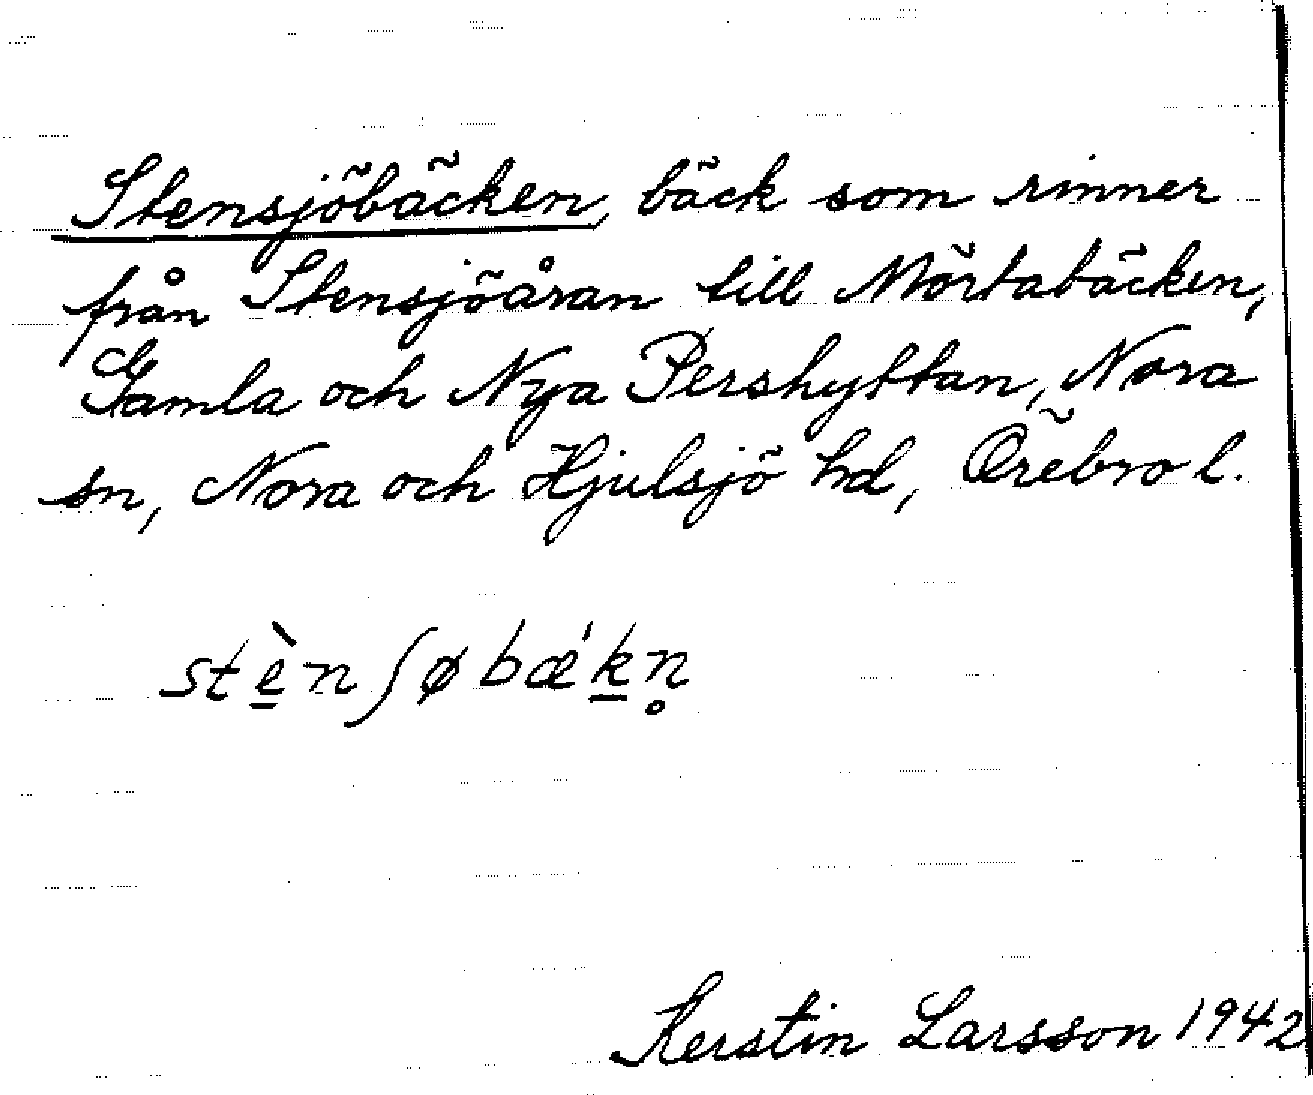 Stensjöbäcken, bäck som rinner
från Stensjöåran till Mörtabäcken,
Gamla och Nya Pershyttan, Nora
sn, Nora och Hjulsjö hd, Örebro l.
stè̱nʃøbǽḵn̥
Kerstin Larsson 1942